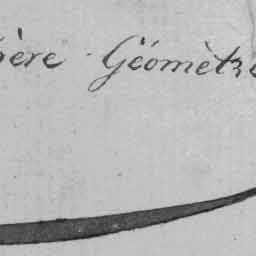 ère Géomètre